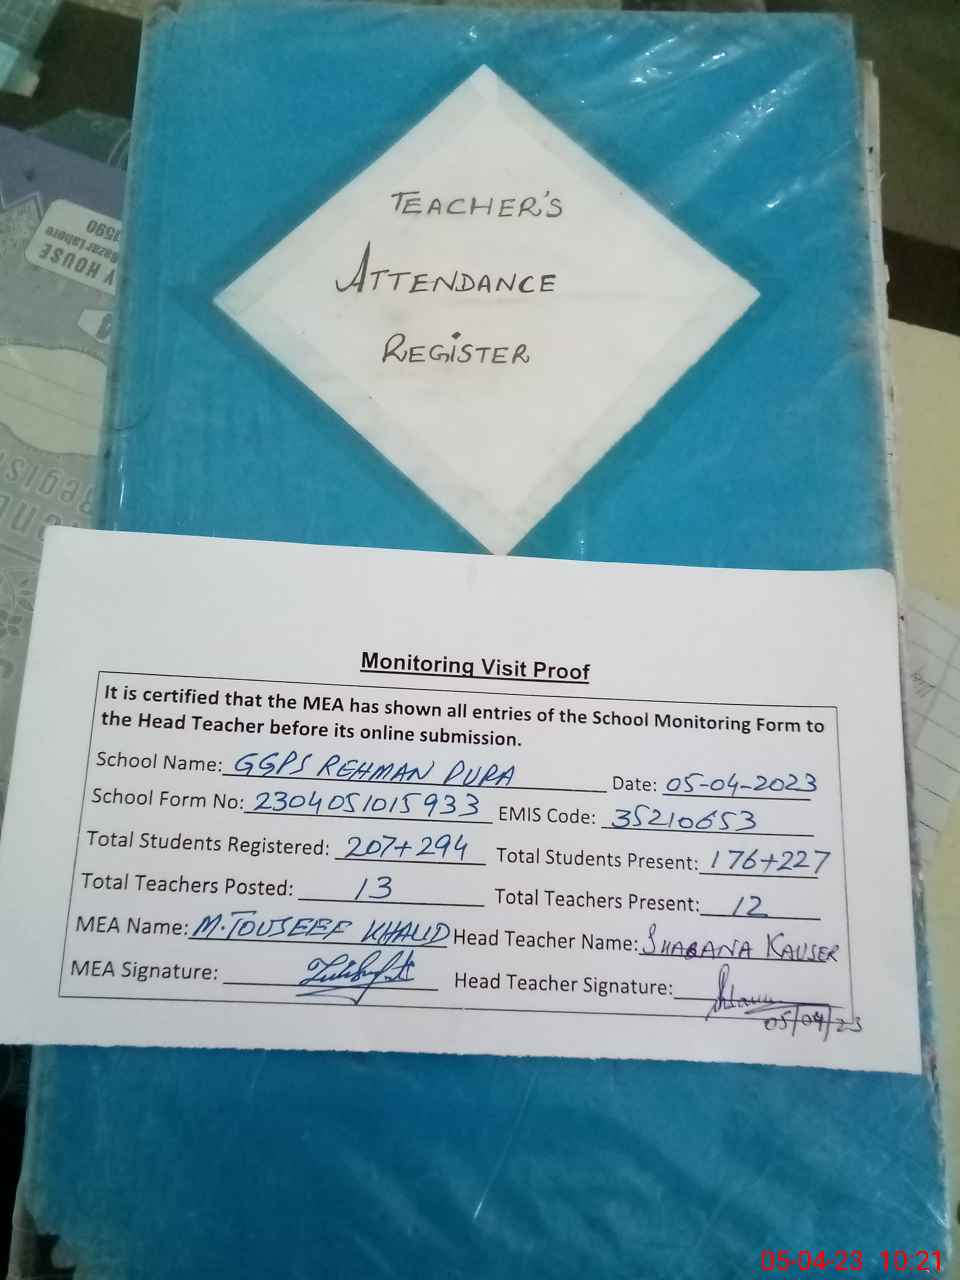 TEACHER'S
ATTENDANCE
REGISTER
Y HOUSE
Bazar Lahore
Monitoring Visit Proof
It is certified that the MEA has shown all entries of the School Monitoring Form to
the Head Teacher before its online submission.
School Name: GGPS REHMAN PURA Date: 05-04-2023
School Form No: 2304051015933 EMIS Code: 35210653
Total Students Registered: 207+294 Total Students Present: 176+227
Total Teachers Posted: 13 Total Teachers Present: 12
MEA Name: M.TOUSEEF KHALID Head Teacher Name: SHABANA KAUSER
MEA Signature: Head Teacher Signature:
05/04/23
05-04-23 10:21